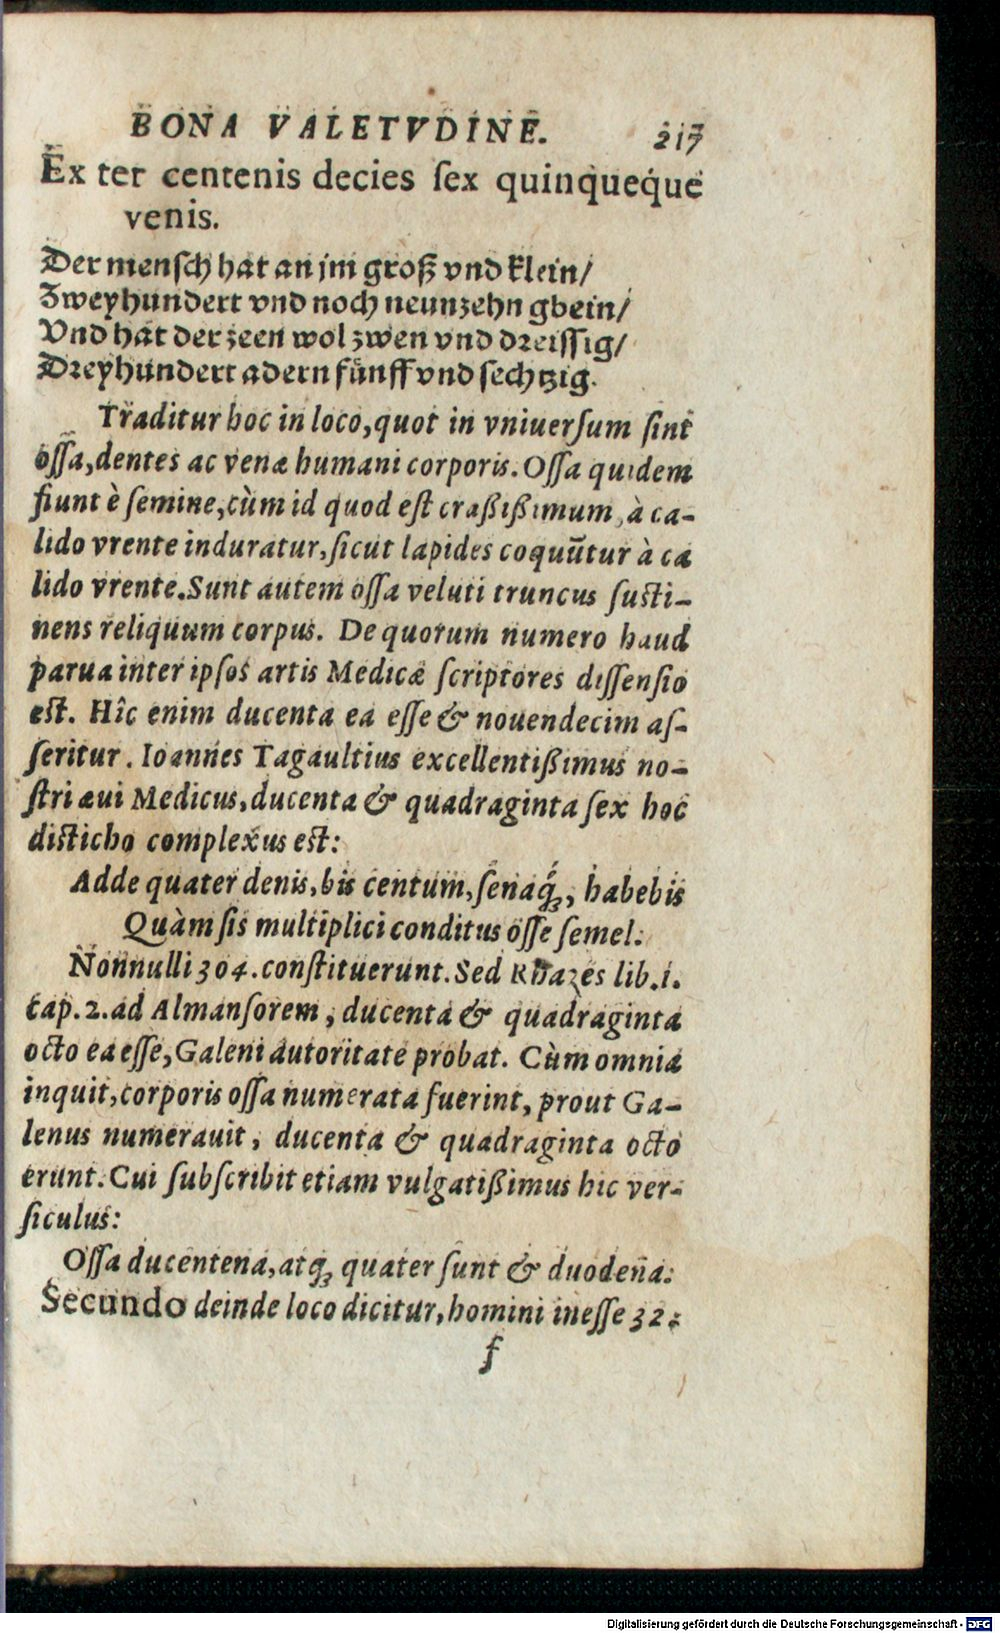 BONA VALETVDINE. 217
Ex ter centenis decies ſex quinqueque
venis.
Der menſch hat an jm groß vnd klein/
Zweyhundert vnd noch neunzehn gbein/
Vnd hat der zeen wol zwen vnd dreiſſig/
Dreyhundert adern fünff vnd ſechtzig.
Traditur hoc in loco, quot in vniuerſum ſint
oſſa, dentes ac venæ humani corporis. Oſſa quidem
fiunt è ſemine, cùm id quod eſt craßißimum, à ca-
lido vrente induratur, ſicut lapides coquūtur à ca
lido vrente. Sunt autem oſſa veluti truncus ſuſti-
nens reliquum corpus. De quorum numero haud
parua inter ipſos artis Medicæ ſcriptores diſſenſio
eſt. Hîc enim ducenta ea eſſe & nouendecim aſ-
ſeritur. Ioannes Tagaultius excellentißimus no-
ſtri æui Medicus, ducenta & quadraginta ſex hoc
diſticho complexus eſt:
Adde quater denis, bis centum, ſenaq́ꝫ, habebis
Quàm ſis multiplici conditus oſſe ſemel.
Nonnulli 304. conſtituerunt. Sed Rhazes lib. 1.
cap. 2. ad Almanſorem, ducenta & quadraginta
octo ea eſſe, Galeni autoritate probat. Cùm omnia
inquit, corporis oſſa numerata fuerint, prout Ga-
lenus numerauit, ducenta & quadraginta octo
erunt. Cui ſubſcribit etiam vulgatißimus hic ver-
ſiculus:
Oſſa ducentena, atqꝫ quater ſunt & duodena.
Secundo deinde loco dicitur, homini ineſſe 32.
f
Digitalisierung gefördert durch die Deutsche Forschungsgemeinschaft - DFG